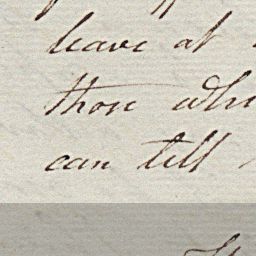 leave at
those who
can tell